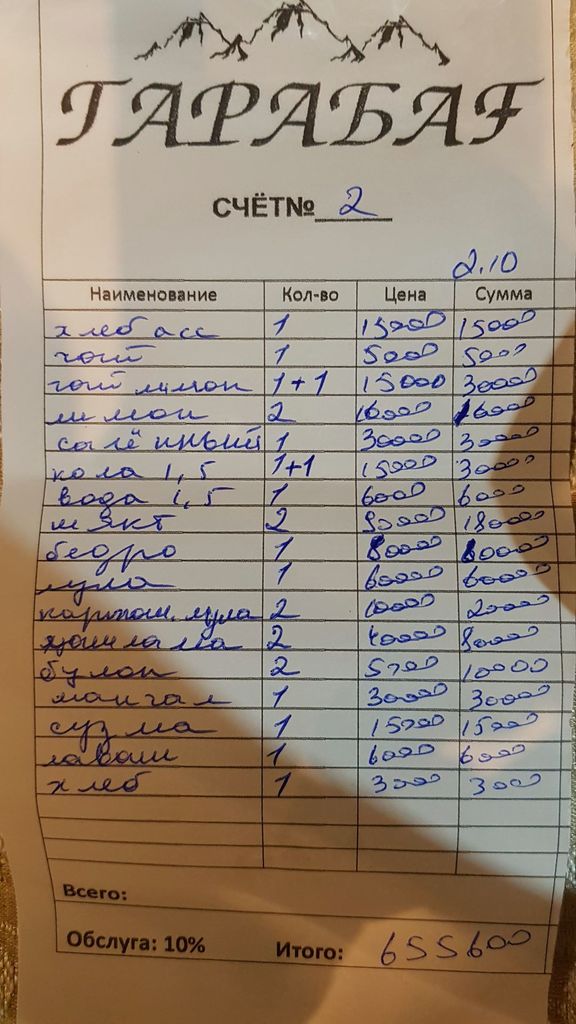 ГАРАБАҒ
СЧЁТ№ 2
2.10
Наименование Кол-во Цена Сумма
хлеб асс 1 15000 15000
чой 1 5000 5000
чой лимон 1+1 15000 30000
лимон 2
солённый 1 30000 30000
кола 1,5 1+1 15000 30000
вода 1,5 1 6000 6000
мякт 2 90000 180000
бедро 1 80000 80000
лула 1 60000 60000
картош. лула 2 10000 20000
2 40000 80000
булон 2 5000 10000
мангал 1 30000 30000
сузма 1 15000 15000
лаваш 1 6000 6000
хлеб 1 3000 3000
Всего:
Обслуга: 10% Итого: 655600